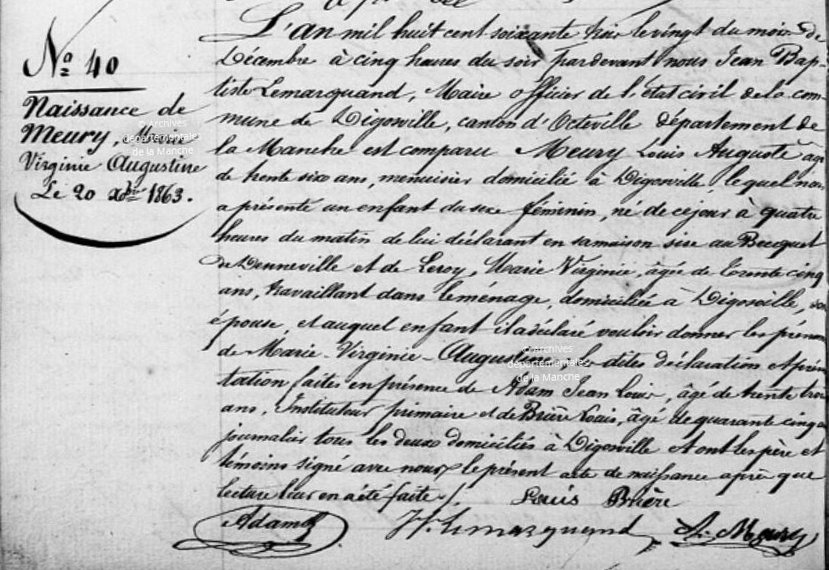 L'an mil huit cent soixante trois le vingt du mois de
Décembre à cinq heures du soir pardevant nous Jean Bap-
tiste Lemarquand, Maire officier de l'état civil de la com-
mune de Digosville, canton d'Octeville département de
la Manche est comparu Meury Louis Auguste âgé
de trente six ans, menuisier domicilié à Digosville lequel nous
a présenté un enfant du sexe féminin, né de ce jour à quatre
heures du matin de lui déclarant en sa maison sise au Becquet
de Menneville et de Leroy, Marie Virginie, âgée de trente cinq
ans, travaillant dans le ménage, domiciliée à Digosville, son
épouse, et auquel enfant il a déclaré vouloir donner les prénoms
de Marie-Virginie-Augustine les dites déclaration et présen-
tation faites en présence de Adam Jean Louis, âgé de trente trois
ans, Instituteur primaire et de Brière Louis, âgé de quarante cinq ans
journalier tous les deux domiciliés à Digosville et ont les père et
témoins signé avec nous le présent acte de naissance après que
lecture leur en a été faite ./.
Louis Brière
Adam
J. Lemarquand
A. Meury
N° 40
Naissance de
Meury, Marie
Virginie Augustine
Le 20 xbre 1863.
© Archives
départementales
de la Manche
© Archives
départementales
de la Manche